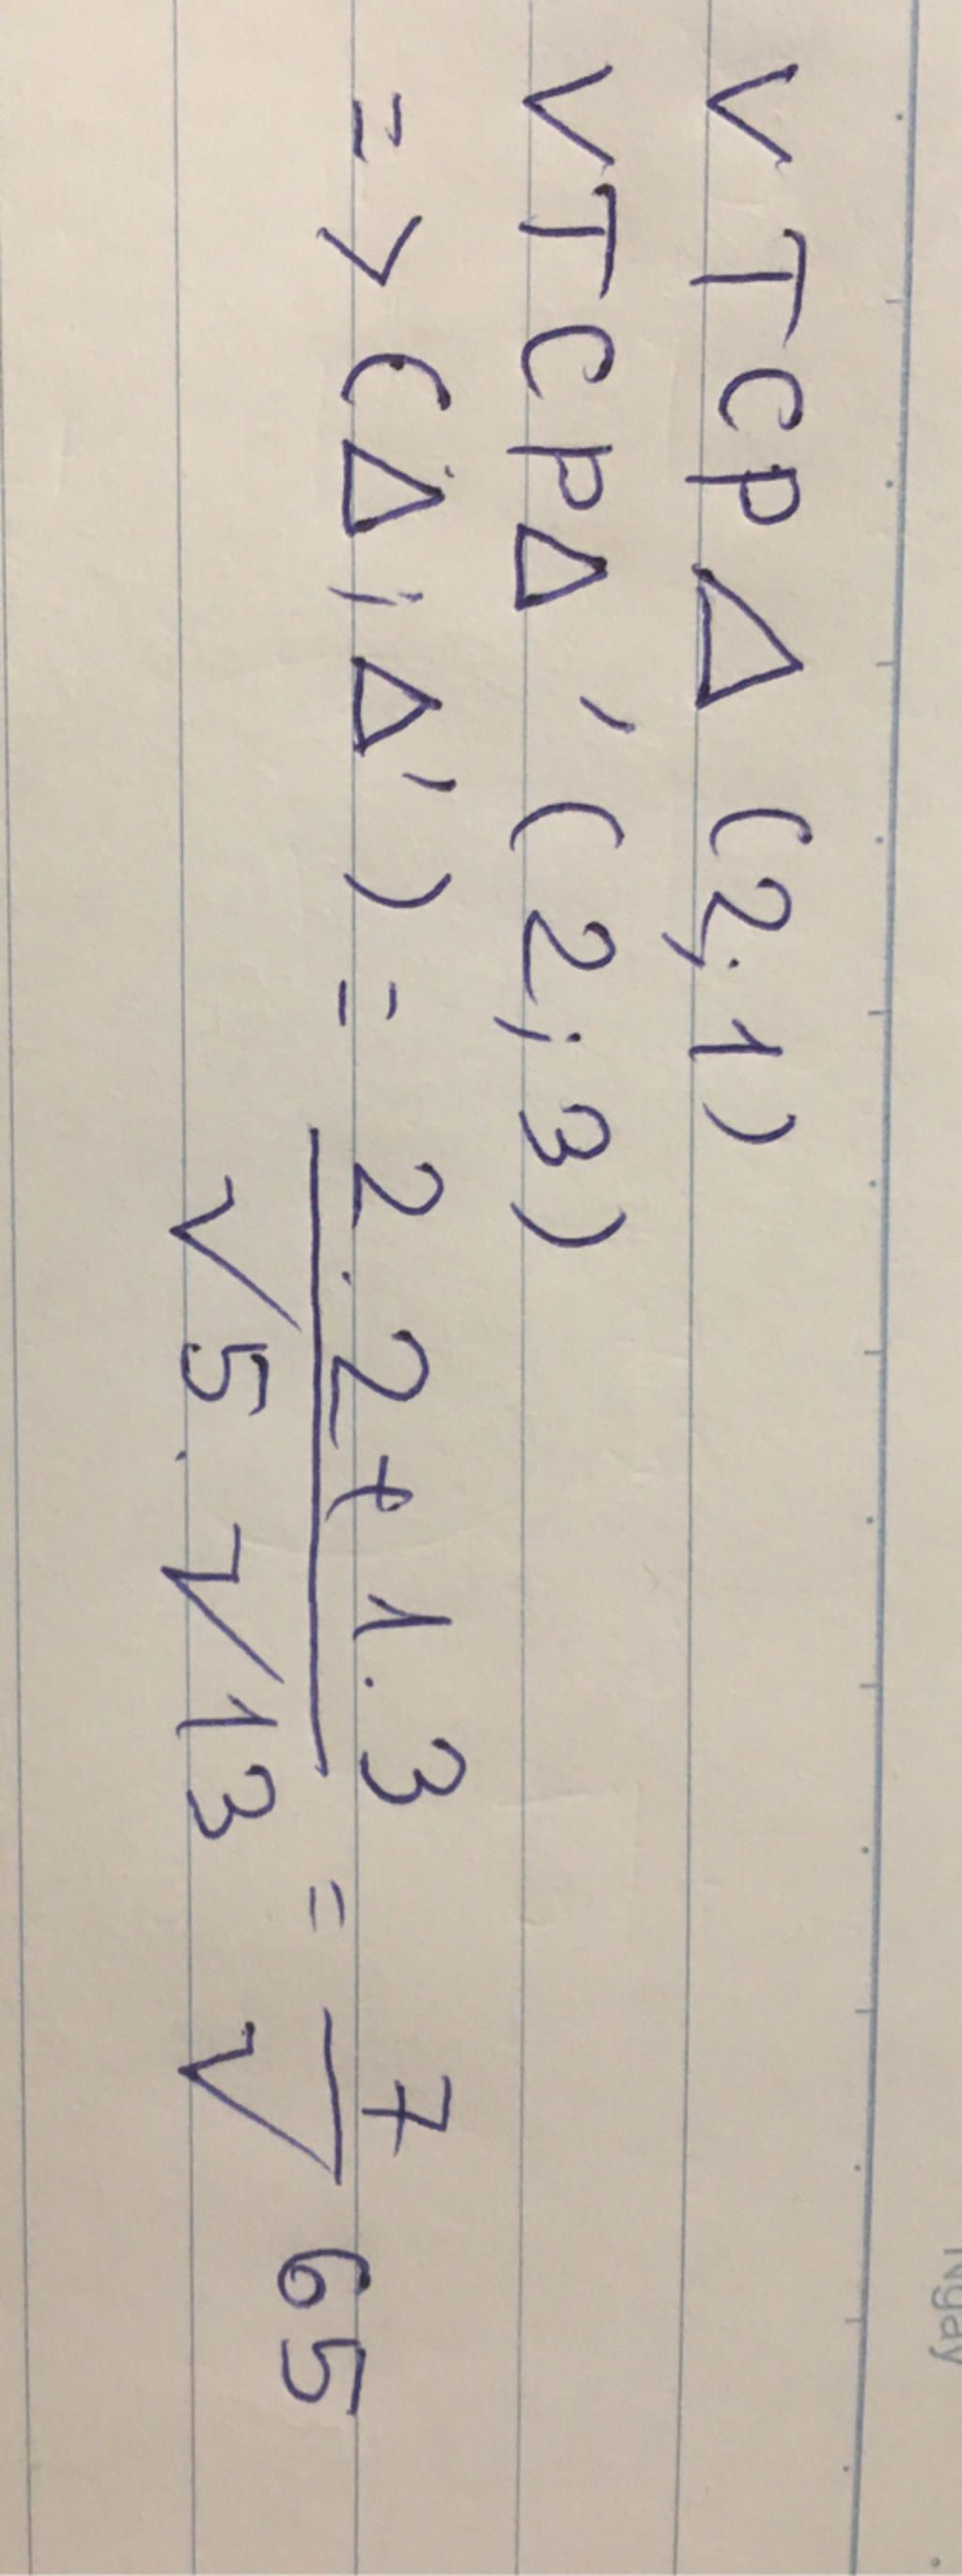 VTCP Δ (2; 1)
VTCP Δ' (2; 3)
=> (Δ; Δ') = 2.2+1.3 / √5.√13 = 7 / √65
Ngày